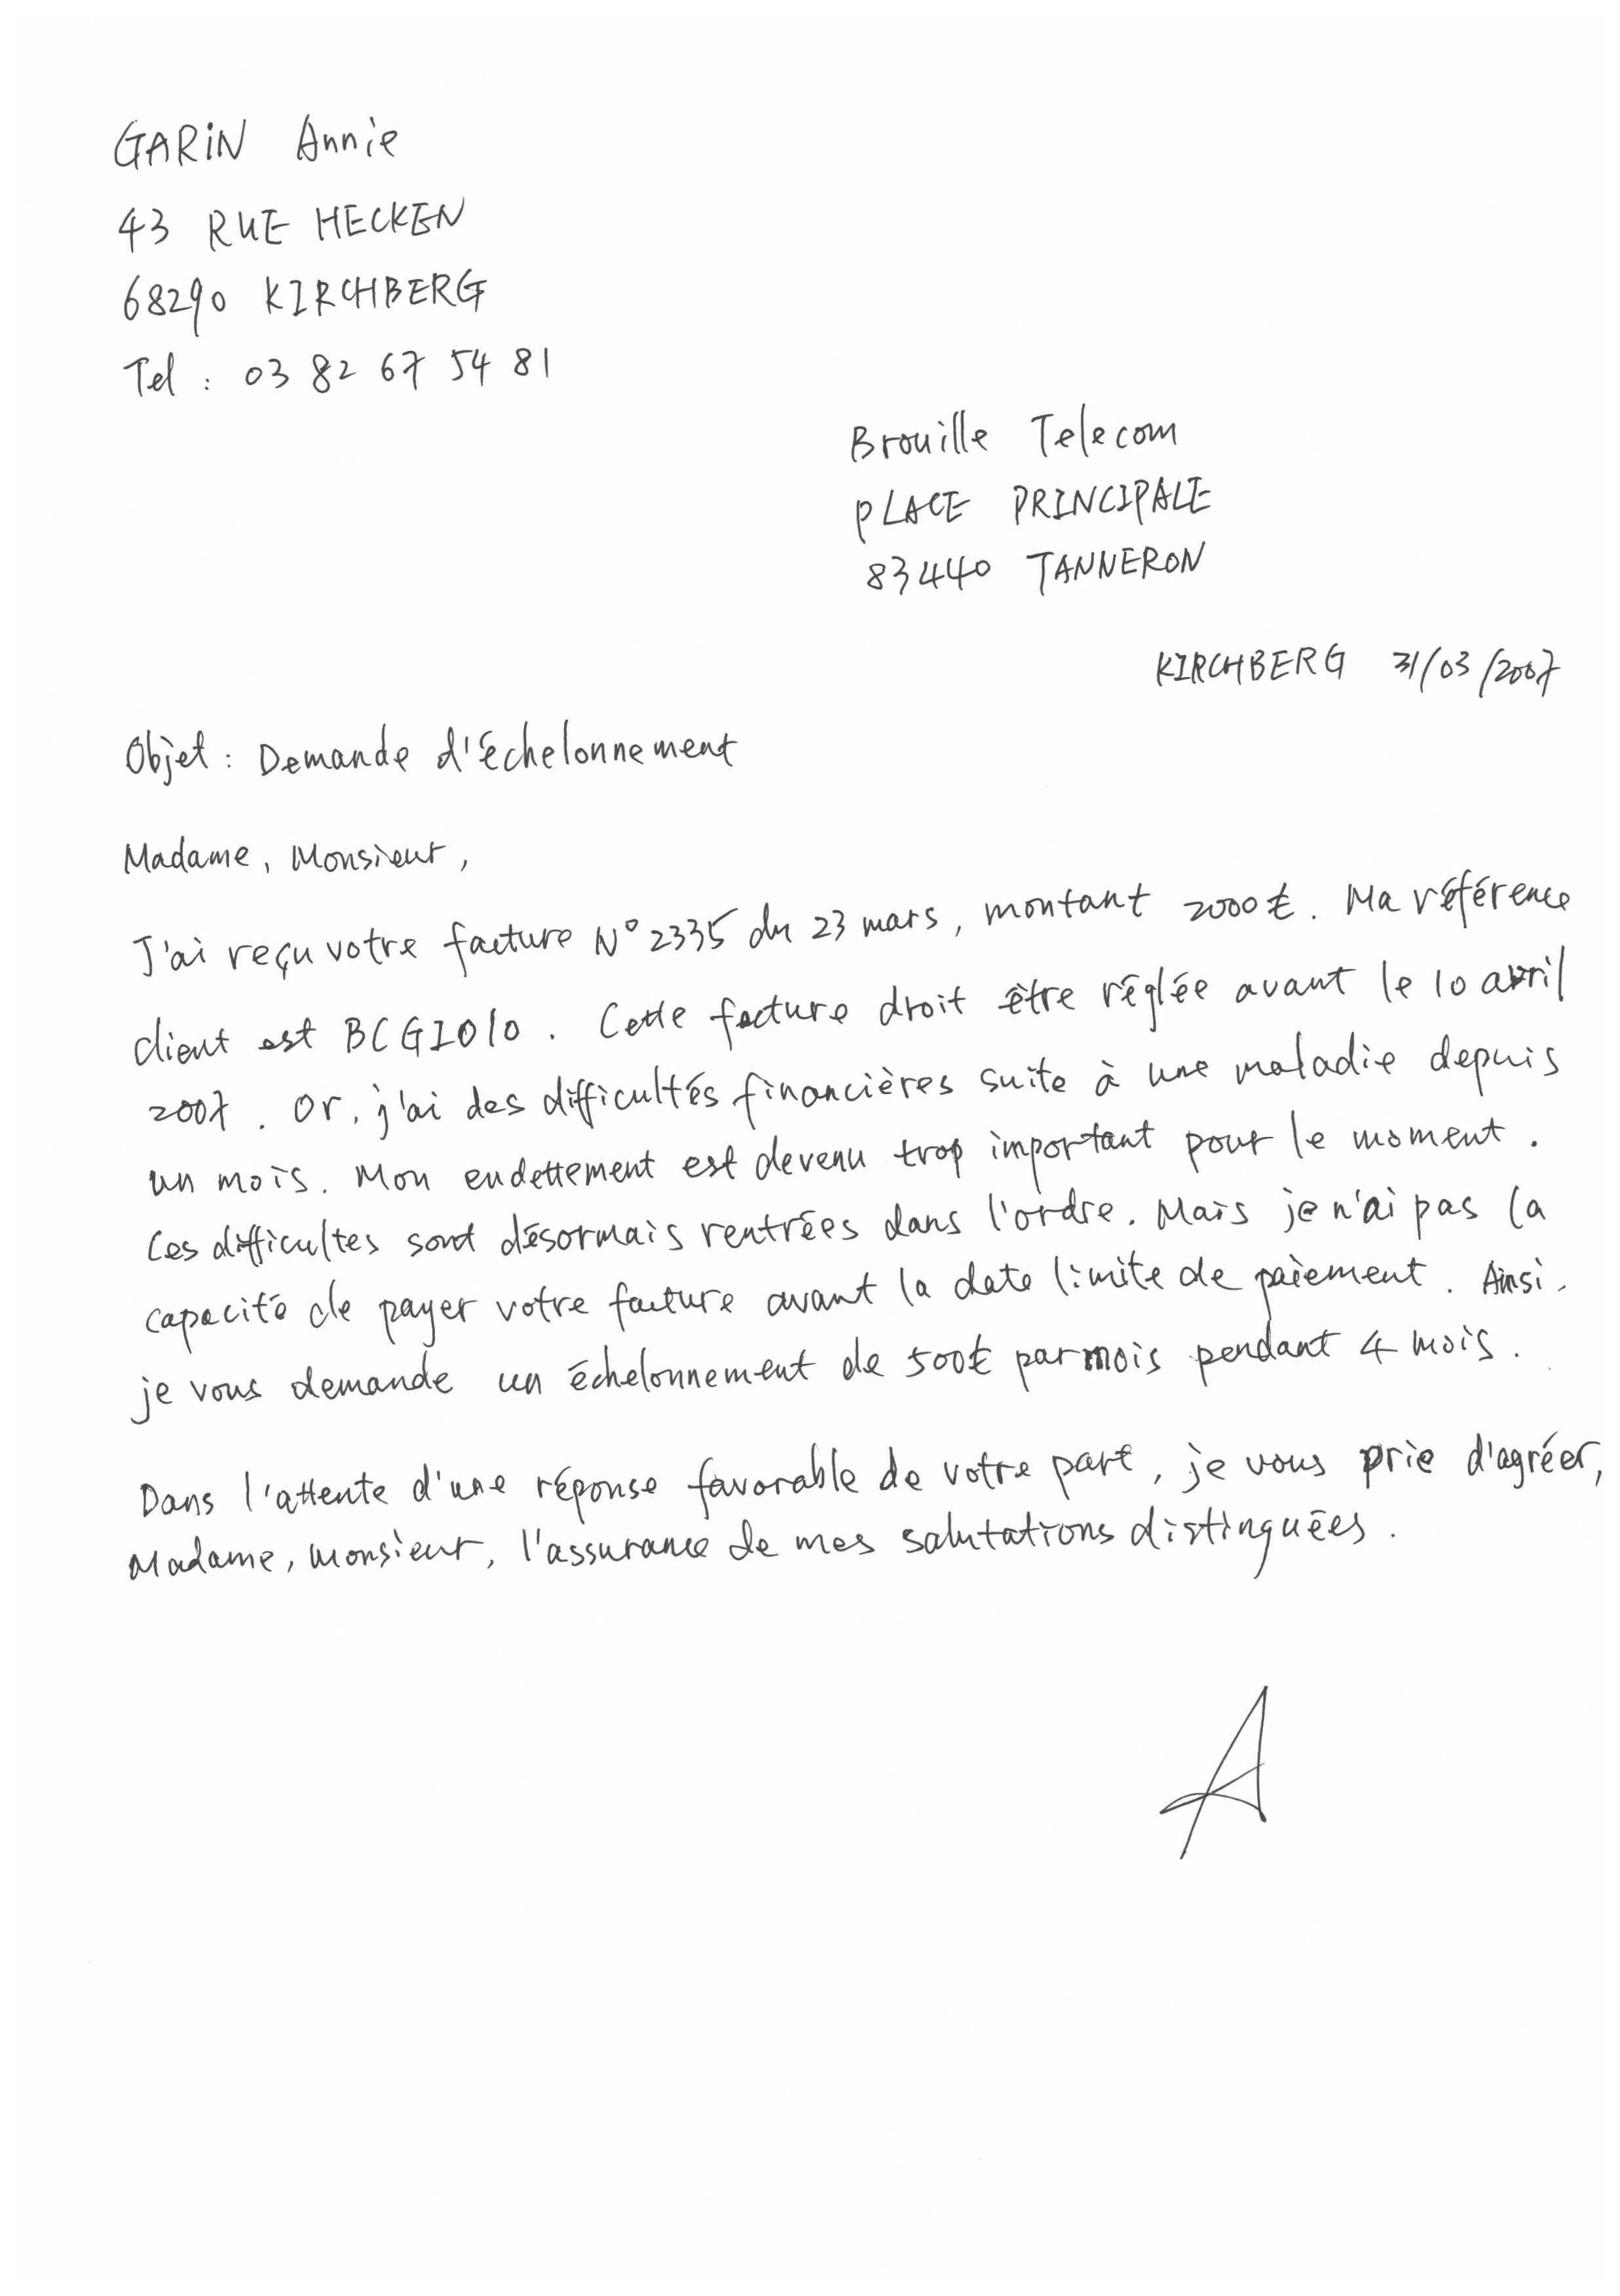 GARIN Annie
43 RUE HECKEN
68290 KIRCHBERG
Tel : 03 82 67 54 81
Brouille Telecom
PLACE PRINCIPALE
83440 TANNERON
KIRCHBERG 31/03/2007
Objet : Demande d'échelonnement
Madame, Monsieur,
J'ai reçu votre facture N° 2335 du 23 mars, montant 2000€. Ma référence
client est BCGIO10. Cette facture droit être réglée avant le 10 avril
2007. Or, j'ai des difficultés financières suite à une maladie depuis
un mois. Mon endettement est devenu trop important pour le moment.
Ces difficultes sont désormais rentrées dans l'ordre. Mais je n'ai pas la
capacité de payer votre facture avant la date limite de paiement. Ainsi,
je vous demande un échelonnement de 500€ par mois pendant 4 mois.
Dans l'attente d'une réponse favorable de votre part, je vous prie d'agréer,
Madame, Monsieur, l'assurance de mes salutations distinguées.
A